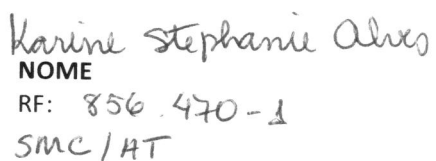 Karine Stephanie Alves
NOME
RF: 856.470-1
SMC/AT